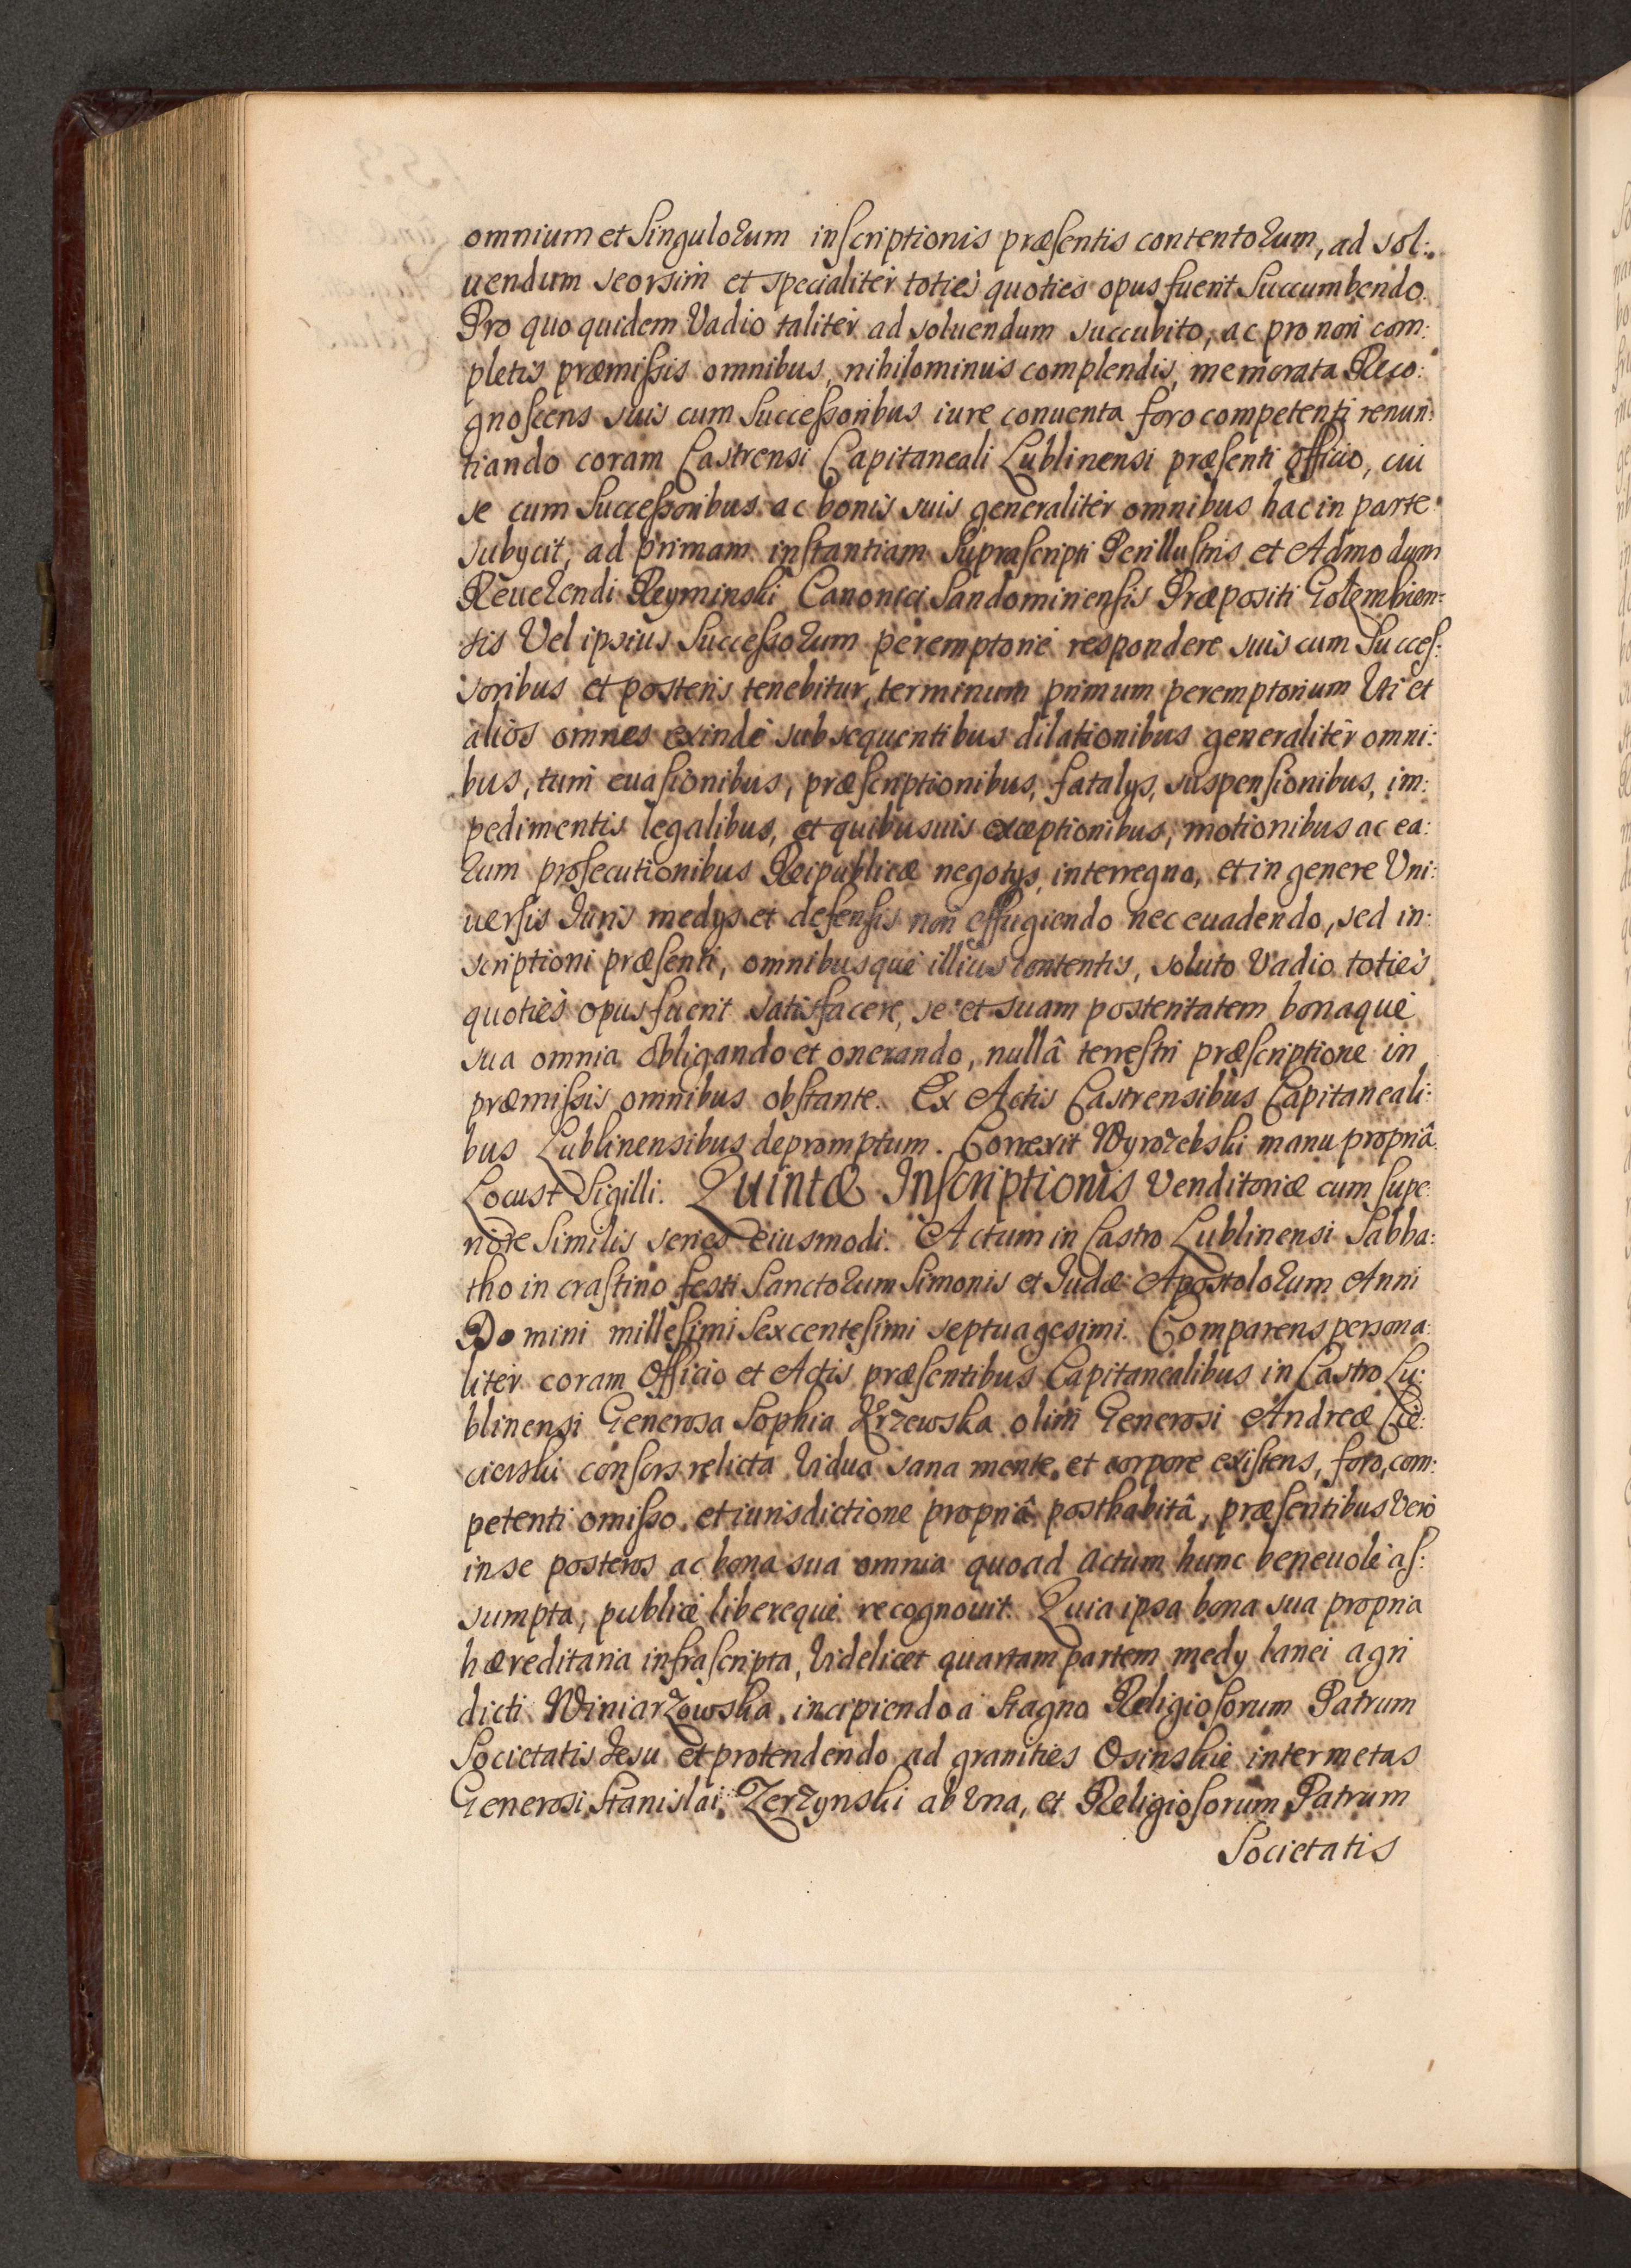 omnium et Singulorum inscriptionis præsentis contentorum, ad sol:
uendum seorsim et specialitèr totiès quotiès opus fuerit Succumbendo.
Pro quo quidem Vadio talitèr ad soluendum succubito, ac pro non com:
pletis præmissis omnibus, nihilominus complendis, memorata Reco:
gnoscens suis cum Successoribus iure conuenta foro competenti renun:
tiando coram Castrensi Capitaneali Lublinensi præsenti Officio, cui
se cum Successoribus ac bonis suis generalitèr omnibus hac in parte
subycit, ad primam instantiam Suprascripti Perillustris et Admodum
Reuerendi Reyminski Canonici Sandominensis Præpositi Gołembien:
sis Vel ipsius Successorum peremptoriè respondere suis cum Succes:
soribus et posteris tenebitur, terminum primum peremptorium Uti et
alios omnes exindè subsequentibus dilationibus generalitèr omni:
bus, tum euasionibus, præscriptionibus, fatalys, suspensionibus, im:
pedimentis legalibus, et quibusuis exceptionibus, motionibus ac ea:
rum prosecutionibus Reipublicæ negotys, interregno, et in genere Uni:
uersis Iuris medys et defensis non effugiendo nec euadendo, sed in:
scriptioni præsenti, omnibusquè illius contentis, soluto Vadio totiès
quotiès opus fuerit satisfacere, se et suam posteritatem bonaquè
sua omnia obligando et onerando, nullâ terrestri præscriptione in
præmissis omnibus obstante. Ex Actis Castrensibus Capitaneali:
bus Lublinensibus depromptum. Correxit Wyrozebski manu propriâ
Locus + Sigilli. Quintæ Inscriptionis Venditoriæ cum supe:
riore Similis series eiusmodi. Actum in Castro Lublinensi Sabba:
tho in crastino festi Sanctorum Simonis et Iudæ Apostolorum Anni
Domini millesimi Sexcentesimi septuagesimi. Comparens persona:
litèr coram Officio et Actis præsentibus Capitanealibus in Castro Lu:
blinensi Generosa Sophia Krzewska olim Generosi Andreæ Cie:
cierski consors relicta Vidua sana mente et corpore existens, foro com:
petenti omisso et iurisdictione propriâ posthabitâ, præsentibus Verò
in se posteros ac bona sua omnia quoad Actum hunc beneuolè as:
sumpta, publicè liberequè recognouit. Quia ipsa bona sua propria
hæreditaria infrascripta, Videlicet quartam partem medy lanei agri
dicti Winiarzowska incipiendo à Stagno Religiosorum Patrum
Societatis Iesu et protendendo ad granities Osinskie inter metas
Generosi Stanislai Zerzynski ab Una, et Religiosorum Patrum
Societatis